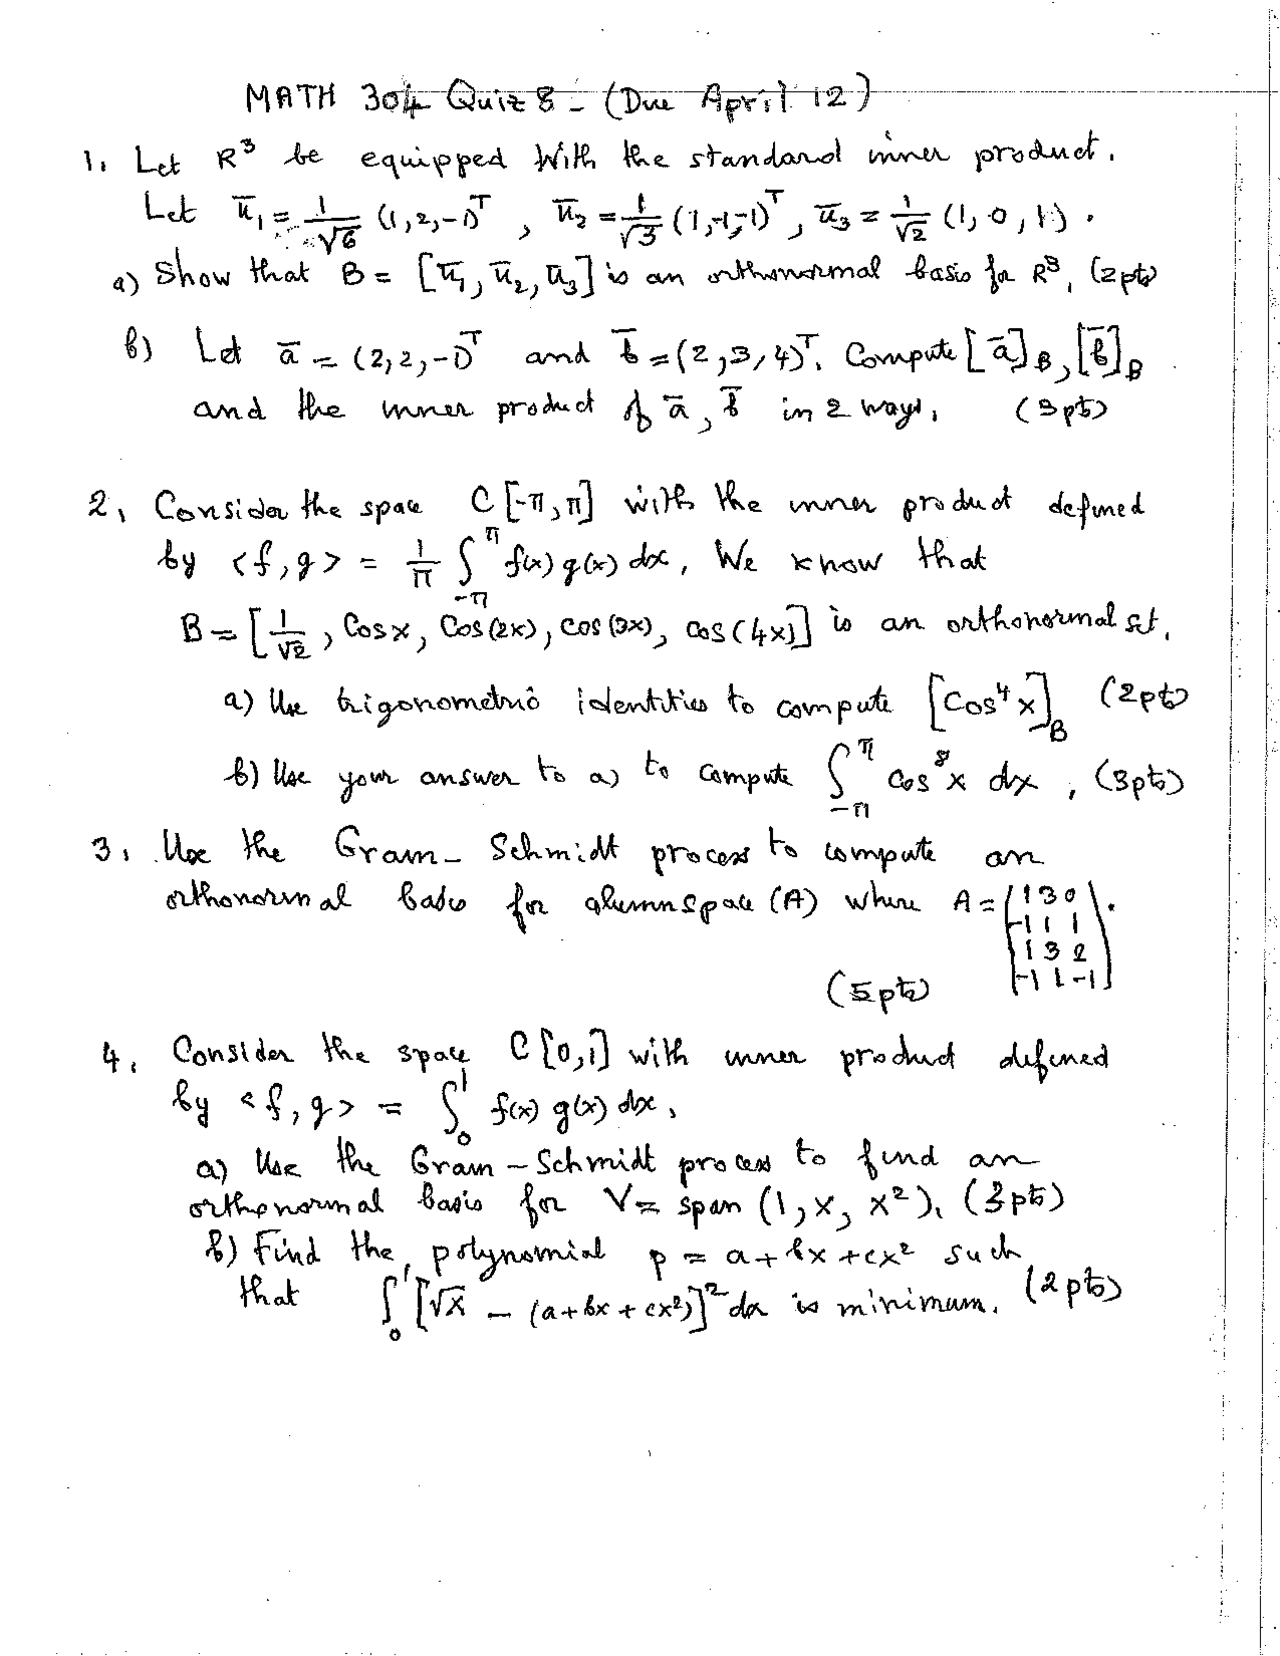 MATH 304 Quiz 8 - (Due April 12)
1. Let R³ be equipped with the standard inner product.
Let ū₁ = 1/√6 (1,2,-1)ᵀ, ū₂ = 1/√3 (1,-1,-1)ᵀ, ū₃ = 1/√2 (1, 0, 1).
a) Show that B = [ū₁, ū₂, ū₃] is an orthonormal basis for R³. (2pts)
b) Let ā = (2,2,-1)ᵀ and b̄ = (2,3,4)ᵀ. Compute [ā]_B, [b̄]_B
and the inner product of ā, b̄ in 2 ways. (3pts)
2. Consider the space C[-π,π] with the inner product defined
by <f,g> = 1/π ∫_{-π}^{π} f(x) g(x) dx. We know that
B = [1/√2, Cosx, Cos(2x), cos(3x), cos(4x)] is an orthonormal set.
a) Use trigonometric identities to compute [Cos⁴x]_B (2pts)
b) Use your answer to a) to compute ∫_{-π}^{π} cos⁸x dx. (3pts)
3. Use the Gram-Schmidt process to compute an
orthonormal basis for columnspace(A) where A = (1 3 0
-1 1 1
1 3 2
-1 1 -1).
(5pts)
4. Consider the space C[0,1] with inner product defined
by <f,g> = ∫₀¹ f(x) g(x) dx.
a) Use the Gram-Schmidt process to find an
orthonormal basis for V = span (1, x, x²). (3pts)
b) Find the polynomial p = a+bx+cx² such
that ∫₀¹ [√x - (a+bx+cx²)]² dx is minimum. (2pts)